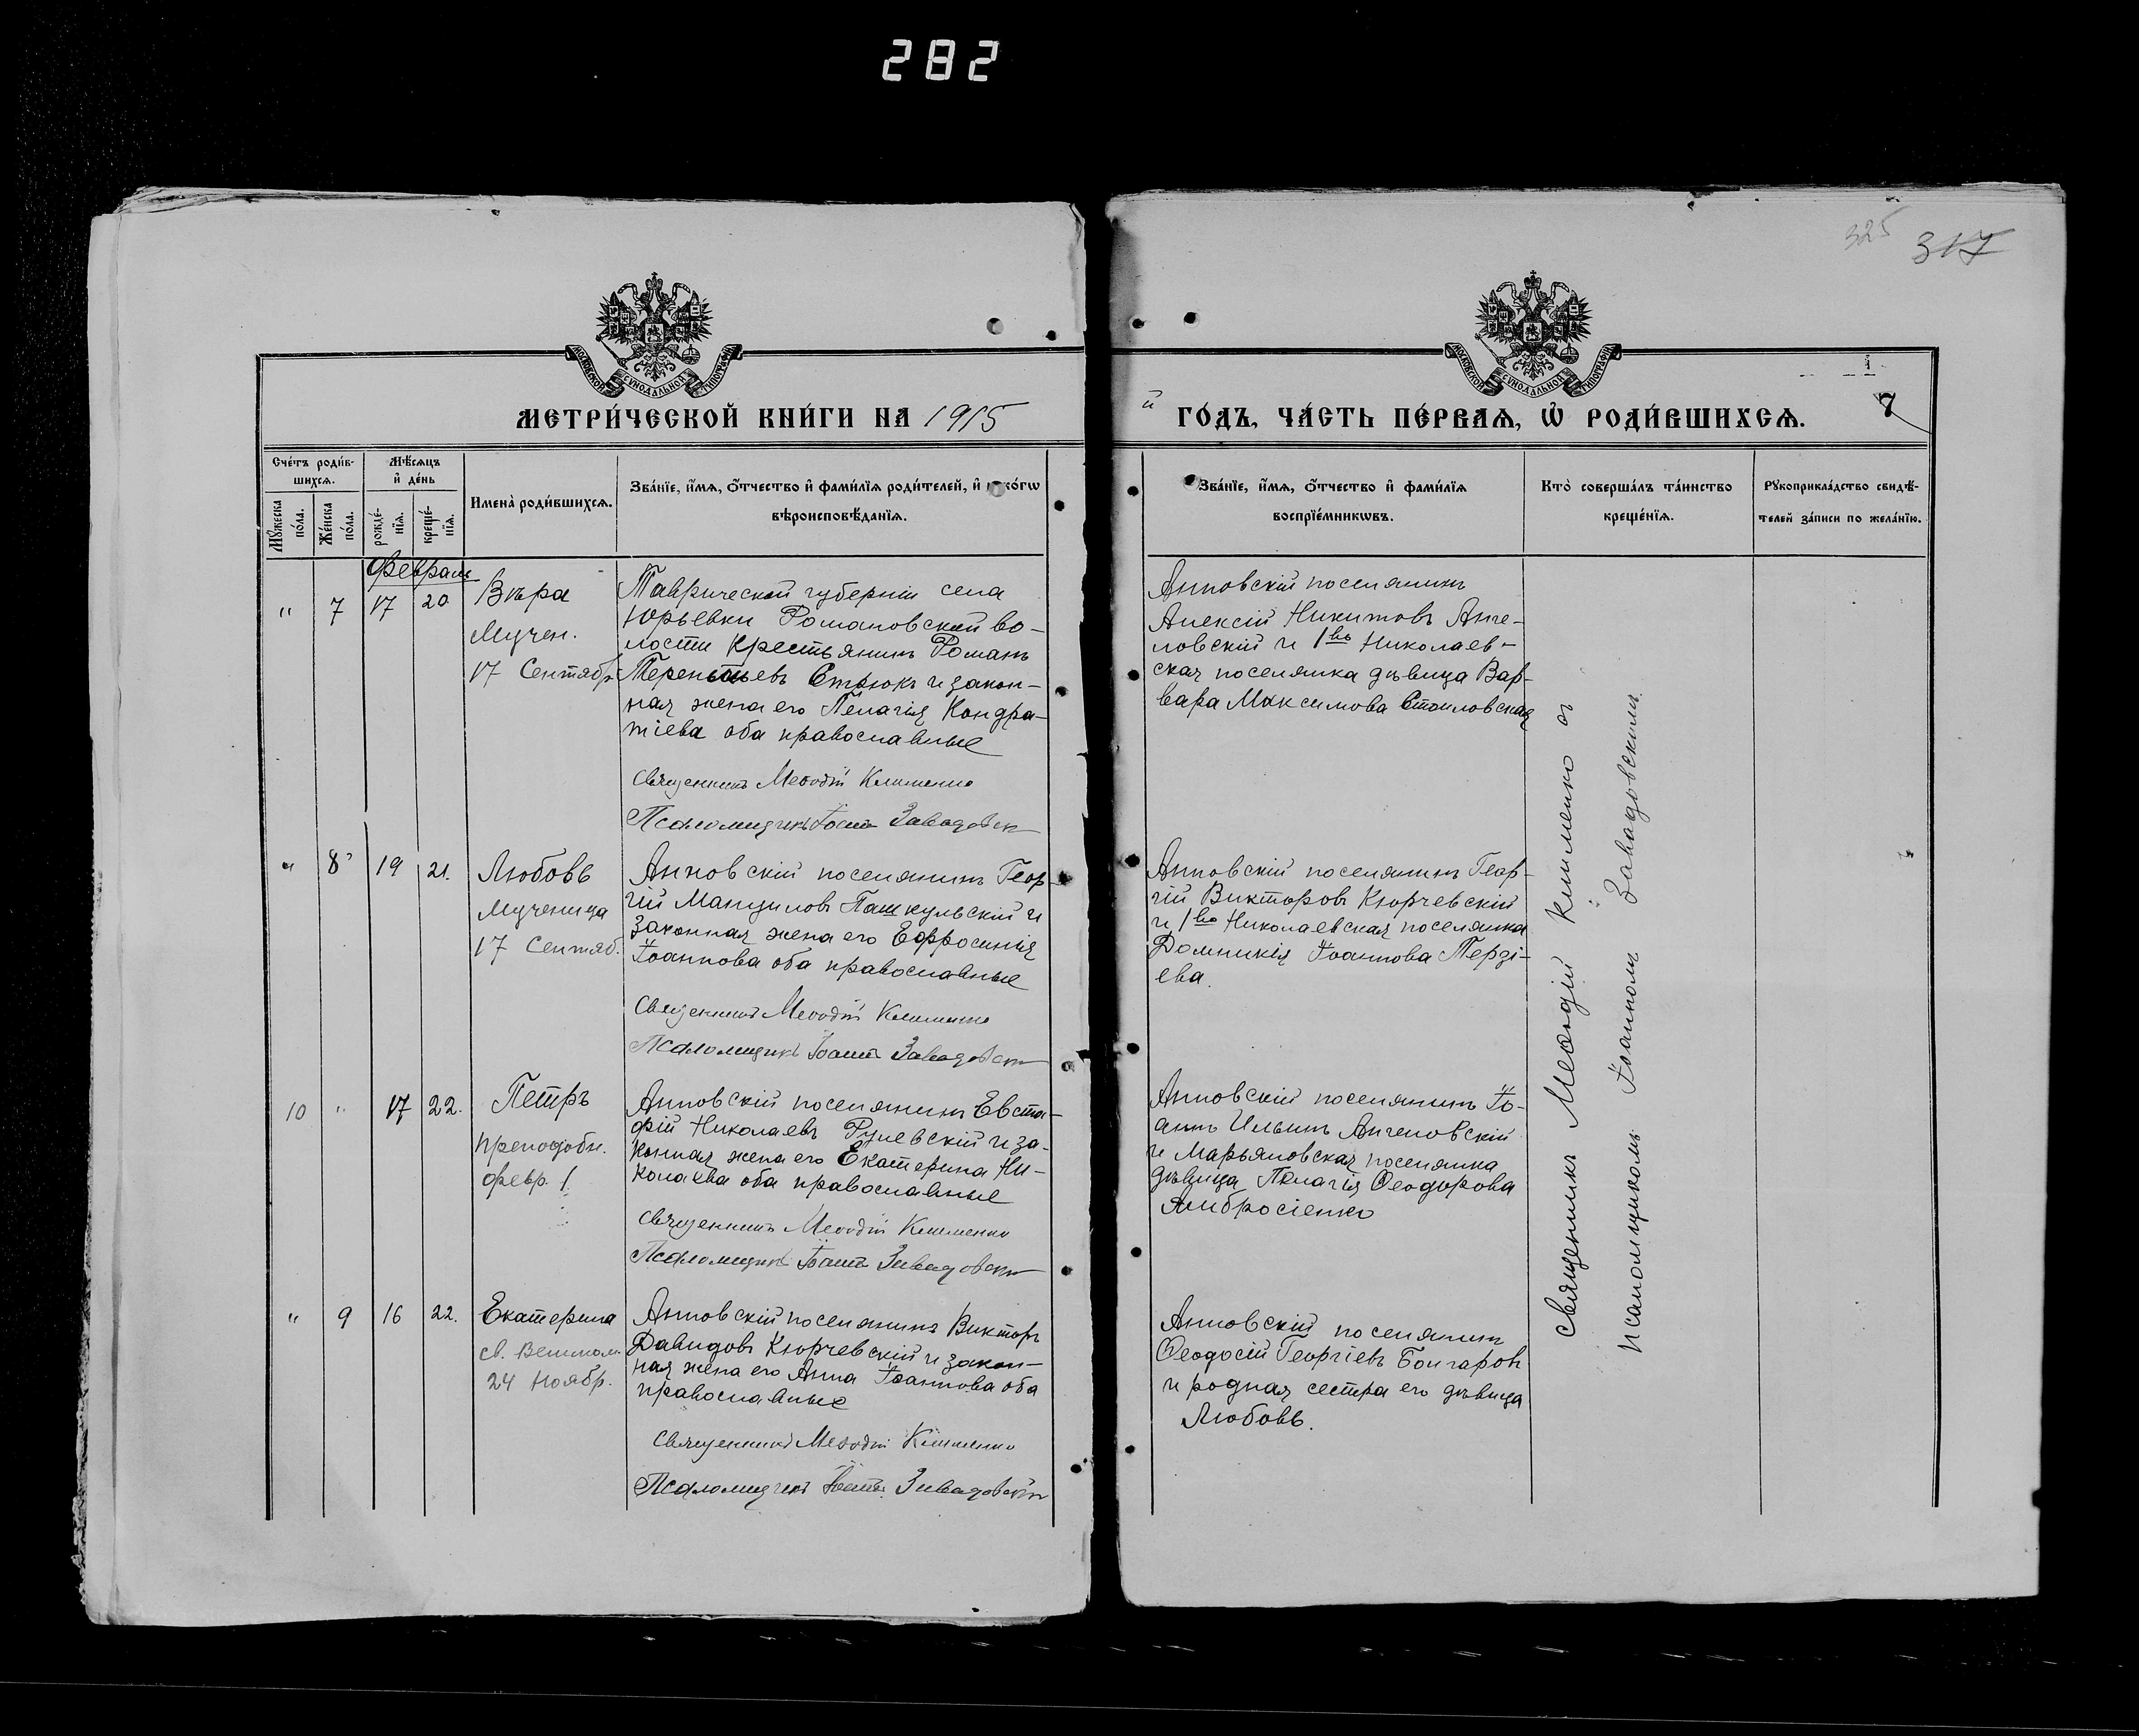 282
325
317
МОСКОВСКОЙ СѴНОДАЛЬНОЙ ТИПОГРАФІИ
МОСКОВСКОЙ СѴНОДАЛЬНОЙ ТИПОГРАФІИ
МЕТРИ́ЧЕСКОЙ КНИ́ГИ НА 1915
й ГО́ДЪ, ЧА́СТЬ ПЕ́РВАѦ, Ѿ РОДИ́ВШИХСѦ.
7
Сче́тъ роди́в-
шихсѧ.
Мꙋ́жеска по́ла.
Же́нска по́ла.
Мѣ́сѧцъ
и҆ де́нь
рожде́-
нїѧ.
креще́-
нїѧ.
Имена̀ роди́вшихсѧ.
Зва́нїе, и҆́мѧ, ѻ҆́тчество и҆ фами́лїѧ роди́телей, и҆ како́гѡ
вѣроисповѣ́данїѧ.
Зва́нїе, и҆́мѧ, ѻ҆́тчество и҆ фами́лїѧ
воспрїе́мникѡвъ.
Кто̀ соверша́лъ та́инство
креще́нїѧ.
Рꙋкоприкла́дство свидѣ́-
телей за́писи по жела́нїю.
Февраль
" 7 17 20
Вѣра
Мучен.
17 Сентября
Таврической губерніи села
Юрьевки Романовской во-
лости крестьянинъ Романъ
Терентьевъ Стоюкъ и закон-
ная жена его Пелагія Кондра-
тіева оба православные
Священникъ Меѳодій Клименко
Псаломщикъ Іоаннъ Завадовскій
Анновскій поселянинъ
Алексій Никитовъ Анге-
ловскій и 1во Николаев-
ская поселянка дѣвица Вар-
вара Максимова Стоиловская
" 8 19 21.
Любовь
Мученица
17 Сентяб.
Анновскій поселянинъ Геор-
гій Мануиловъ Пашкульскій и
законная жена его Ефросинія
Іоаннова оба православные
Священникъ Меѳодій Клименко
Псаломщикъ Іоаннъ Завадовскій
Анновскій поселянинъ Геор-
гій Викторовъ Кюрчевскій
и 1во Николаевская поселянка
Домникія Іоаннова Терзі-
ева.
10 " 17 22.
Петръ
Преподобн.
февр. 1
Анновскій поселянинъ Евста-
фій Николаевъ Рулевскій и за-
конная жена его Екатерина Ни-
колаева оба православные
Священникъ Меѳодій Клименко
Псаломщикъ Іоаннъ Завадовскій
Анновскій поселянинъ Іо-
аннъ Ильинъ Ангеловскій
и Марьяновская поселянка
дѣвица Пелагія Ѳеодорова
Амбросіенко
" 9 16 22.
Екатерина
св. Великом.
24 Ноябр.
Анновскій поселянинъ Викторъ
Давидовъ Кюрчевскій и закон-
ная жена его Анна Іоаннова оба
православные
Священникъ Меѳодій Клименко
Псаломщикъ Іоаннъ Завадовскій
Анновскій поселянинъ
Ѳеодосій Георгіевъ Бончаровъ
и родная сестра его дѣвица
Любовь.
Священникъ Меѳодій Клименко съ
псаломщикомъ Іоанномъ Завадовскимъ